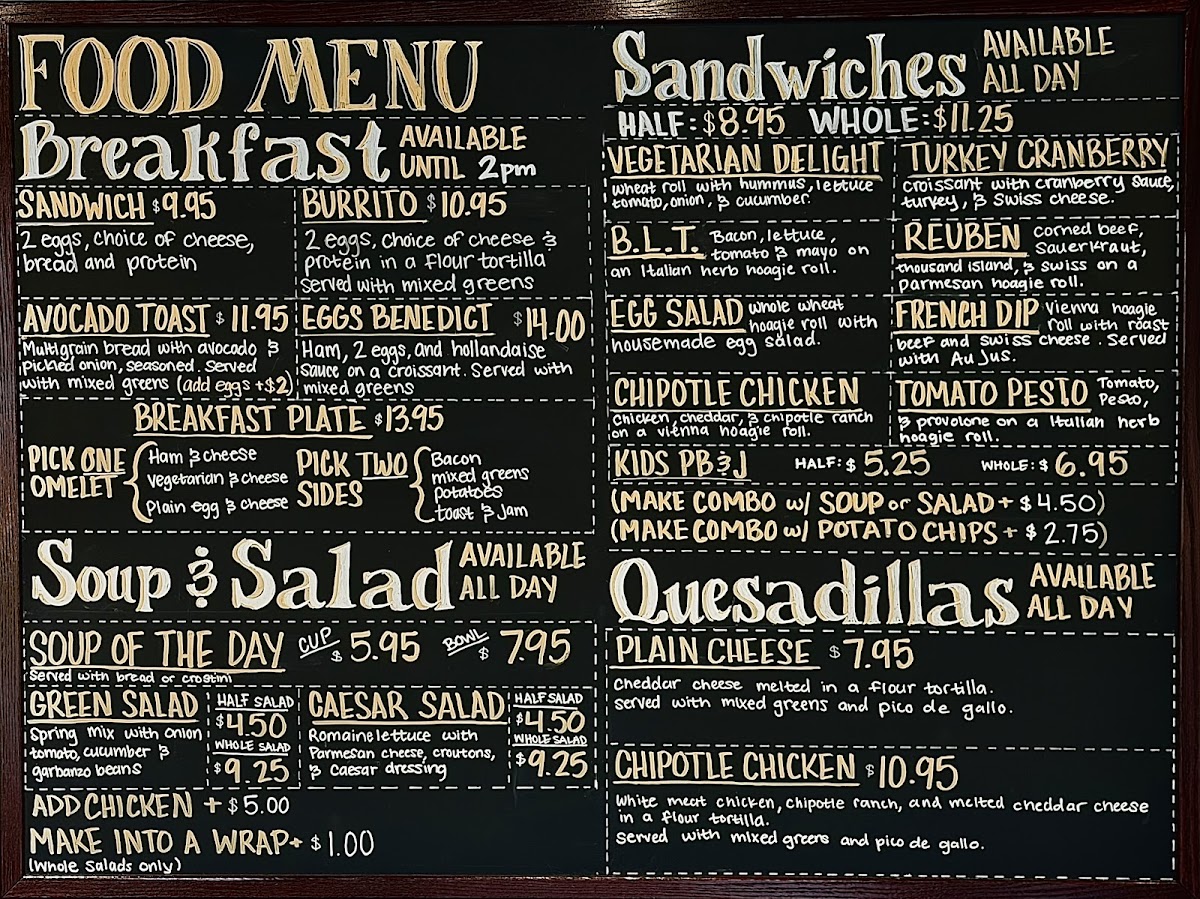 FOOD MENU
Breakfast AVAILABLE UNTIL 2pm
SANDWICH $9.95
2 eggs, choice of cheese,
bread and protein
BURRITO $10.95
2 eggs, choice of cheese &
protein in a flour tortilla
served with mixed greens
AVOCADO TOAST $11.95
Multigrain bread with avocado &
pickled onion, seasoned. Served
with mixed greens (add eggs +$2)
EGGS BENEDICT $14.00
Ham, 2 eggs, and hollandaise
sauce on a croissant. Served with
mixed greens
BREAKFAST PLATE $13.95
PICK ONE
OMELET
Ham & cheese
Vegetarian & cheese
Plain egg & cheese
PICK TWO
SIDES
Bacon
mixed greens
potatoes
toast & jam
Soup & Salad AVAILABLE ALL DAY
SOUP OF THE DAY CUP $5.95 BOWL $7.95
Served with bread or crostini
GREEN SALAD
Spring mix with onion
tomato, cucumber &
garbanzo beans
HALF SALAD
$4.50
WHOLE SALAD
$9.25
CAESAR SALAD
Romaine lettuce with
Parmesan cheese, croutons,
& Caesar dressing
HALF SALAD
$4.50
WHOLE SALAD
$9.25
ADD CHICKEN + $5.00
MAKE INTO A WRAP+ $1.00
(Whole Salads only)
Sandwiches AVAILABLE ALL DAY
HALF: $8.95 WHOLE: $11.25
VEGETARIAN DELIGHT
wheat roll with hummus, lettuce
tomato, onion, & cucumber.
TURKEY CRANBERRY
croissant with cranberry sauce,
turkey, & Swiss cheese.
B.L.T. Bacon, lettuce,
tomato & mayo on
an Italian herb hoagie roll.
REUBEN corned beef,
Sauerkraut,
thousand island, & swiss on a
parmesan hoagie roll.
EGG SALAD whole wheat
hoagie roll with
housemade egg salad.
FRENCH DIP Vienna hoagie
roll with roast
beef and swiss cheese. Served
with Au Jus.
CHIPOTLE CHICKEN
Chicken, cheddar, & chipotle ranch
on a vienna hoagie roll.
TOMATO PESTO Tomato,
Pesto,
& provolone on a Italian herb
hoagie roll.
KIDS PB&J HALF: $5.25 WHOLE: $6.95
(MAKE COMBO w/ SOUP or SALAD + $4.50)
(MAKE COMBO w/ POTATO CHIPS + $2.75)
Quesadillas AVAILABLE ALL DAY
PLAIN CHEESE $7.95
Cheddar cheese melted in a flour tortilla.
served with mixed greens and pico de gallo.
CHIPOTLE CHICKEN $10.95
White meat chicken, chipotle ranch, and melted cheddar cheese
in a flour tortilla.
Served with mixed greens and pico de gallo.